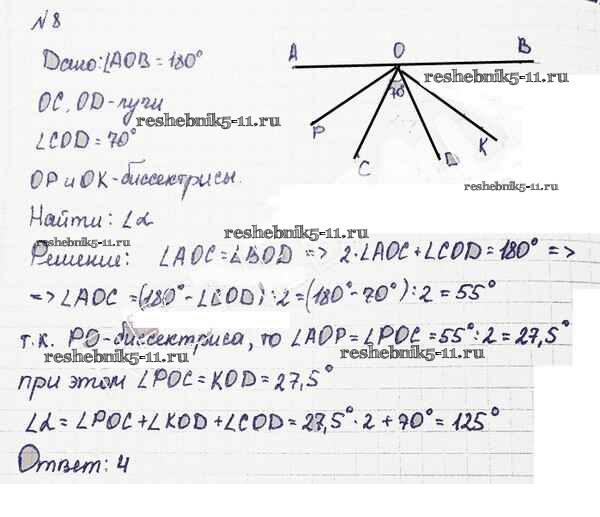 № 8
Дано: ∠AOB = 180°
OC, OD - лучи
∠COD = 70°
OP и OK - биссектрисы.
Найти: ∠α
A O B
70°
P C D K
Решение: ∠AOC = ∠BOD => 2·∠AOC + ∠COD = 180° =>
=> ∠AOC = (180° - ∠COD) : 2 = (180° - 70°) : 2 = 55°
т.к. PO - биссектриса, то ∠AOP = ∠POC = 55° : 2 = 27,5°
при этом ∠POC = KOD = 27,5°
∠α = ∠POC + ∠KOD + ∠COD = 27,5° · 2 + 70° = 125°
Ответ: 4
reshebnik5-11.ru
reshebnik5-11.ru
reshebnik5-11.ru
reshebnik5-11.ru
reshebnik5-11.ru
reshebnik5-11.ru
reshebnik5-11.ru